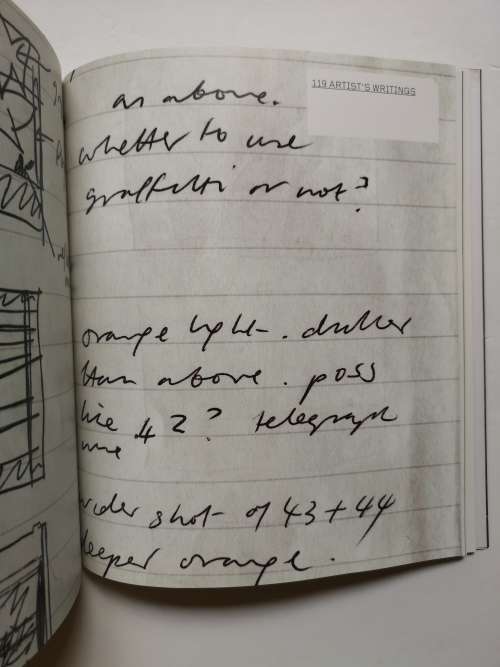 119 ARTIST'S WRITINGS
as above.
whether to use
graffitti or not?
orange light. duller
than above. poss
like 42? telegraph
wire
wider shot of 43 + 44
deeper orange.